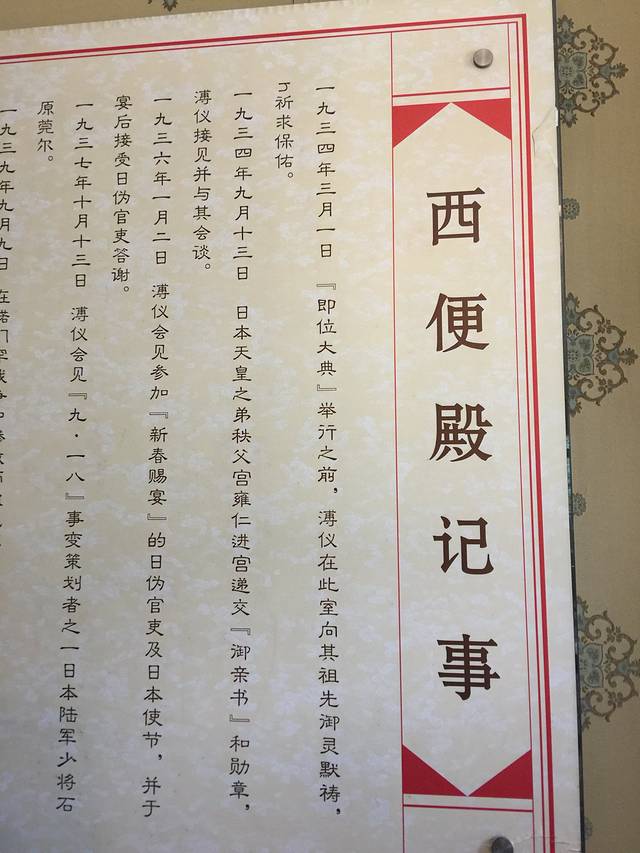 西便殿记事
一九三四年三月一日 『即位大典』举行之前，溥仪在此室向其祖先御灵默祷，
祈求保佑。
一九三四年九月十三日 日本天皇之弟秩父宫雍仁进宫递交『御亲书』和勋章，
溥仪接见并与其会谈。
一九三六年一月二日 溥仪会见参加『新春赐宴』的日伪官吏及日本使节，并于
宴后接受日伪官吏答谢。
一九三七年十月十三日 溥仪会见『九·一八』事变策划者之一日本陆军少将石
原莞尔。
一九三九年九月九日 在诺门